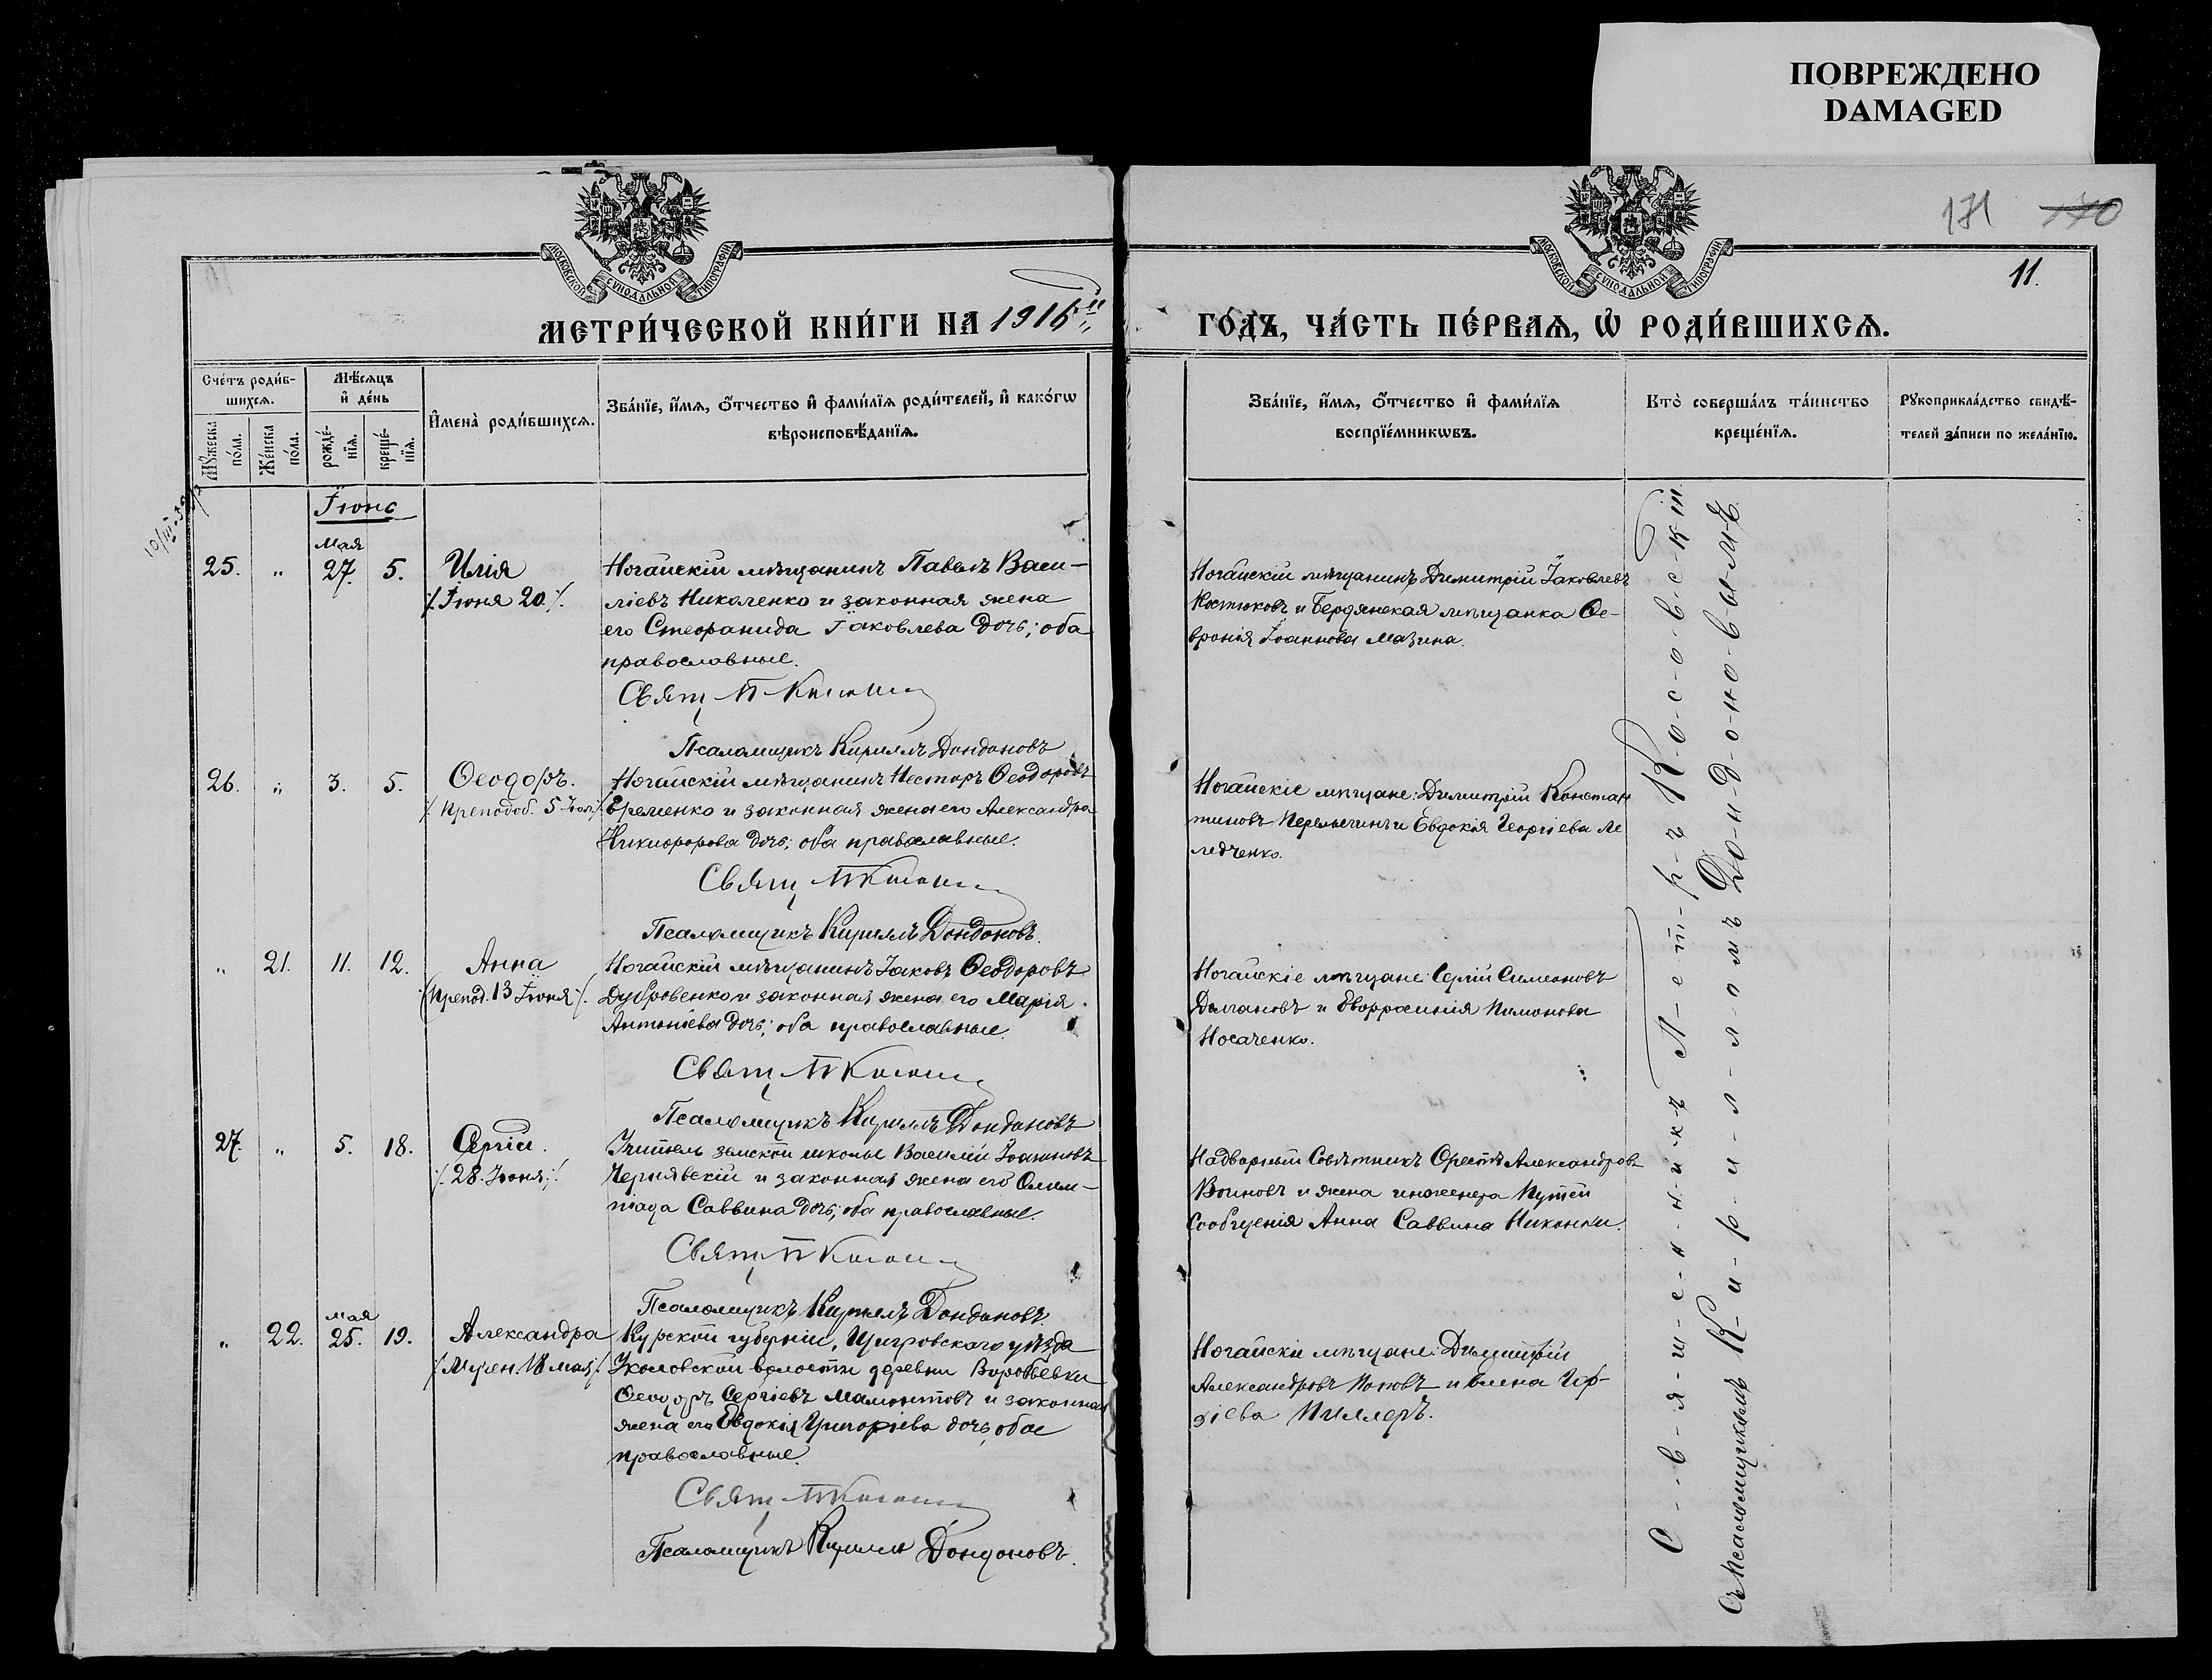 ПОВРЕЖДЕНО
DAMAGED
171 170
11.
МОСКОВСКОЙ СѴНОДАЛЬНОЙ ТИПОГРАФІИ
МОСКОВСКОЙ СѴНОДАЛЬНОЙ ТИПОГРАФІИ
МЕТРИ́ЧЕСКОЙ КНИ́ГИ НА 1916й
ГО́ДЪ, ЧА́СТЬ ПЕ́РВАѦ, Ѡ҆ РОДИ́ВШИХСѦ.
Сче́тъ роди́в-
шихсѧ.
Мѣ́сѧцъ
и҆ де́нь
Мꙋ́жеска
по́ла.
Же́нска
по́ла.
рожде́-
нїѧ.
креще́-
нїѧ.
И҆мена̀ роди́вшихсѧ.
Зва́нїе, и҆́мѧ, ѻ҆́тчество и҆ фами́лїѧ роди́телей, и҆ како́гѡ
вѣроисповѣ́данїѧ.
Зва́нїе, и҆́мѧ, ѻ҆́тчество и҆ фами́лїѧ
воспрїе́мникѡвъ.
Кто̀ соверша́лъ та́инство
креще́нїѧ.
Рꙋкоприкла́дство свидѣ́-
телей за́писи по жела́нїю.
Іюнь
Мая
25. " 27. 5. Илія
/. Іюня 20 ./.
Ногайскій мѣщанинъ Павелъ Васи-
ліевъ Николенко и законная жена
его Стефанида Іаковлева дочь; оба
православные.
Свящ П Косовс
Псаломщикъ Кириллъ Дондоновъ
Ногайскій мѣщанинъ Димитрій Іаковлевъ
Костюковъ и Бердянская мѣщанка Ѳе-
вронія Іоаннова Мазина.
26. " 3. 5. Ѳеодоръ.
/. Преподоб. 5 Іюл./.
Ногайскій мѣщанинъ Несторъ Ѳеодоровъ
Еременко и законная жена его Александра
Никифорова дочь; оба православные.
Свящ П Косовс
Псаломщикъ Кириллъ Дондоновъ.
Ногайскіе мѣщане: Димитрій Констан
тиновъ и Евдокія Георгіева Ле
ледченко.
" 21. 11. 12. Анна
(Препод. 13 Іюня)/.
Ногайскій мѣщанинъ Іаковъ Ѳеодоровъ
Дубровенко и законная жена его Марія
Антоніева дочь; оба православные.
Свящ П Косовс
Псаломщикъ Кириллъ Дондоновъ
Ногайскіе мѣщане: Сергій Симеоновъ
Долгановъ и Евфросинія Пимонова
Носаченко.
27. " 5. 18. Сергій.
/. 28 Іюня ./.
Учитель земской школы Василій Іоанновъ
Чернявскій и законная жена его Олим-
піада Саввина дочь; оба православные.
Свящ П Косовс
Псаломщикъ Кириллъ Дондоновъ.
Надворный Совѣтникъ Орестъ Александровъ
Воиновъ и жена инженера Путей
Сообщенія Анна Саввина
мая
" 22. 25. 19. Александра
/. Мучен. 18 мая ./.
Курской губерніи, Щигровскаго уѣзда
Уколовской волости деревни Воробьевки
Ѳеодоръ Сергіевъ Мамонтовъ и законная
жена его Евдокія Григоріева дочь, обое
православные.
Свящ П Косовс
Псаломщикъ Кириллъ Дондоновъ.
Ногайскіи мѣщане: Димитрій
Александровъ Поповъ и Елена Геор-
гіева Миллеръ.
С-в-я-щ-е-н-н-и-к-ъ П-е-т-р-ъ К-о-с-о-в-с-к-ій
съ Псаломщикомъ К-и-р-и-л-л-о-мъ Д-о-н-д-о-н-о-в-ы-м-ъ.